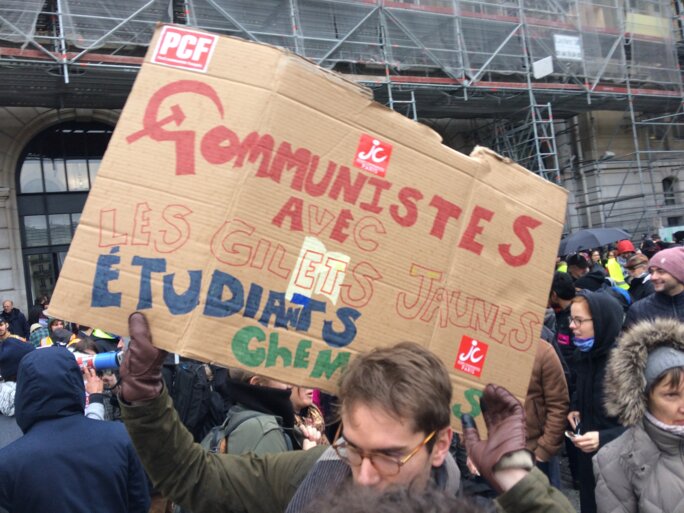 PCF
COMMUNISTES
jc
AVEC
LES GILETS JAUNES
ÉTUDIANTS
jc